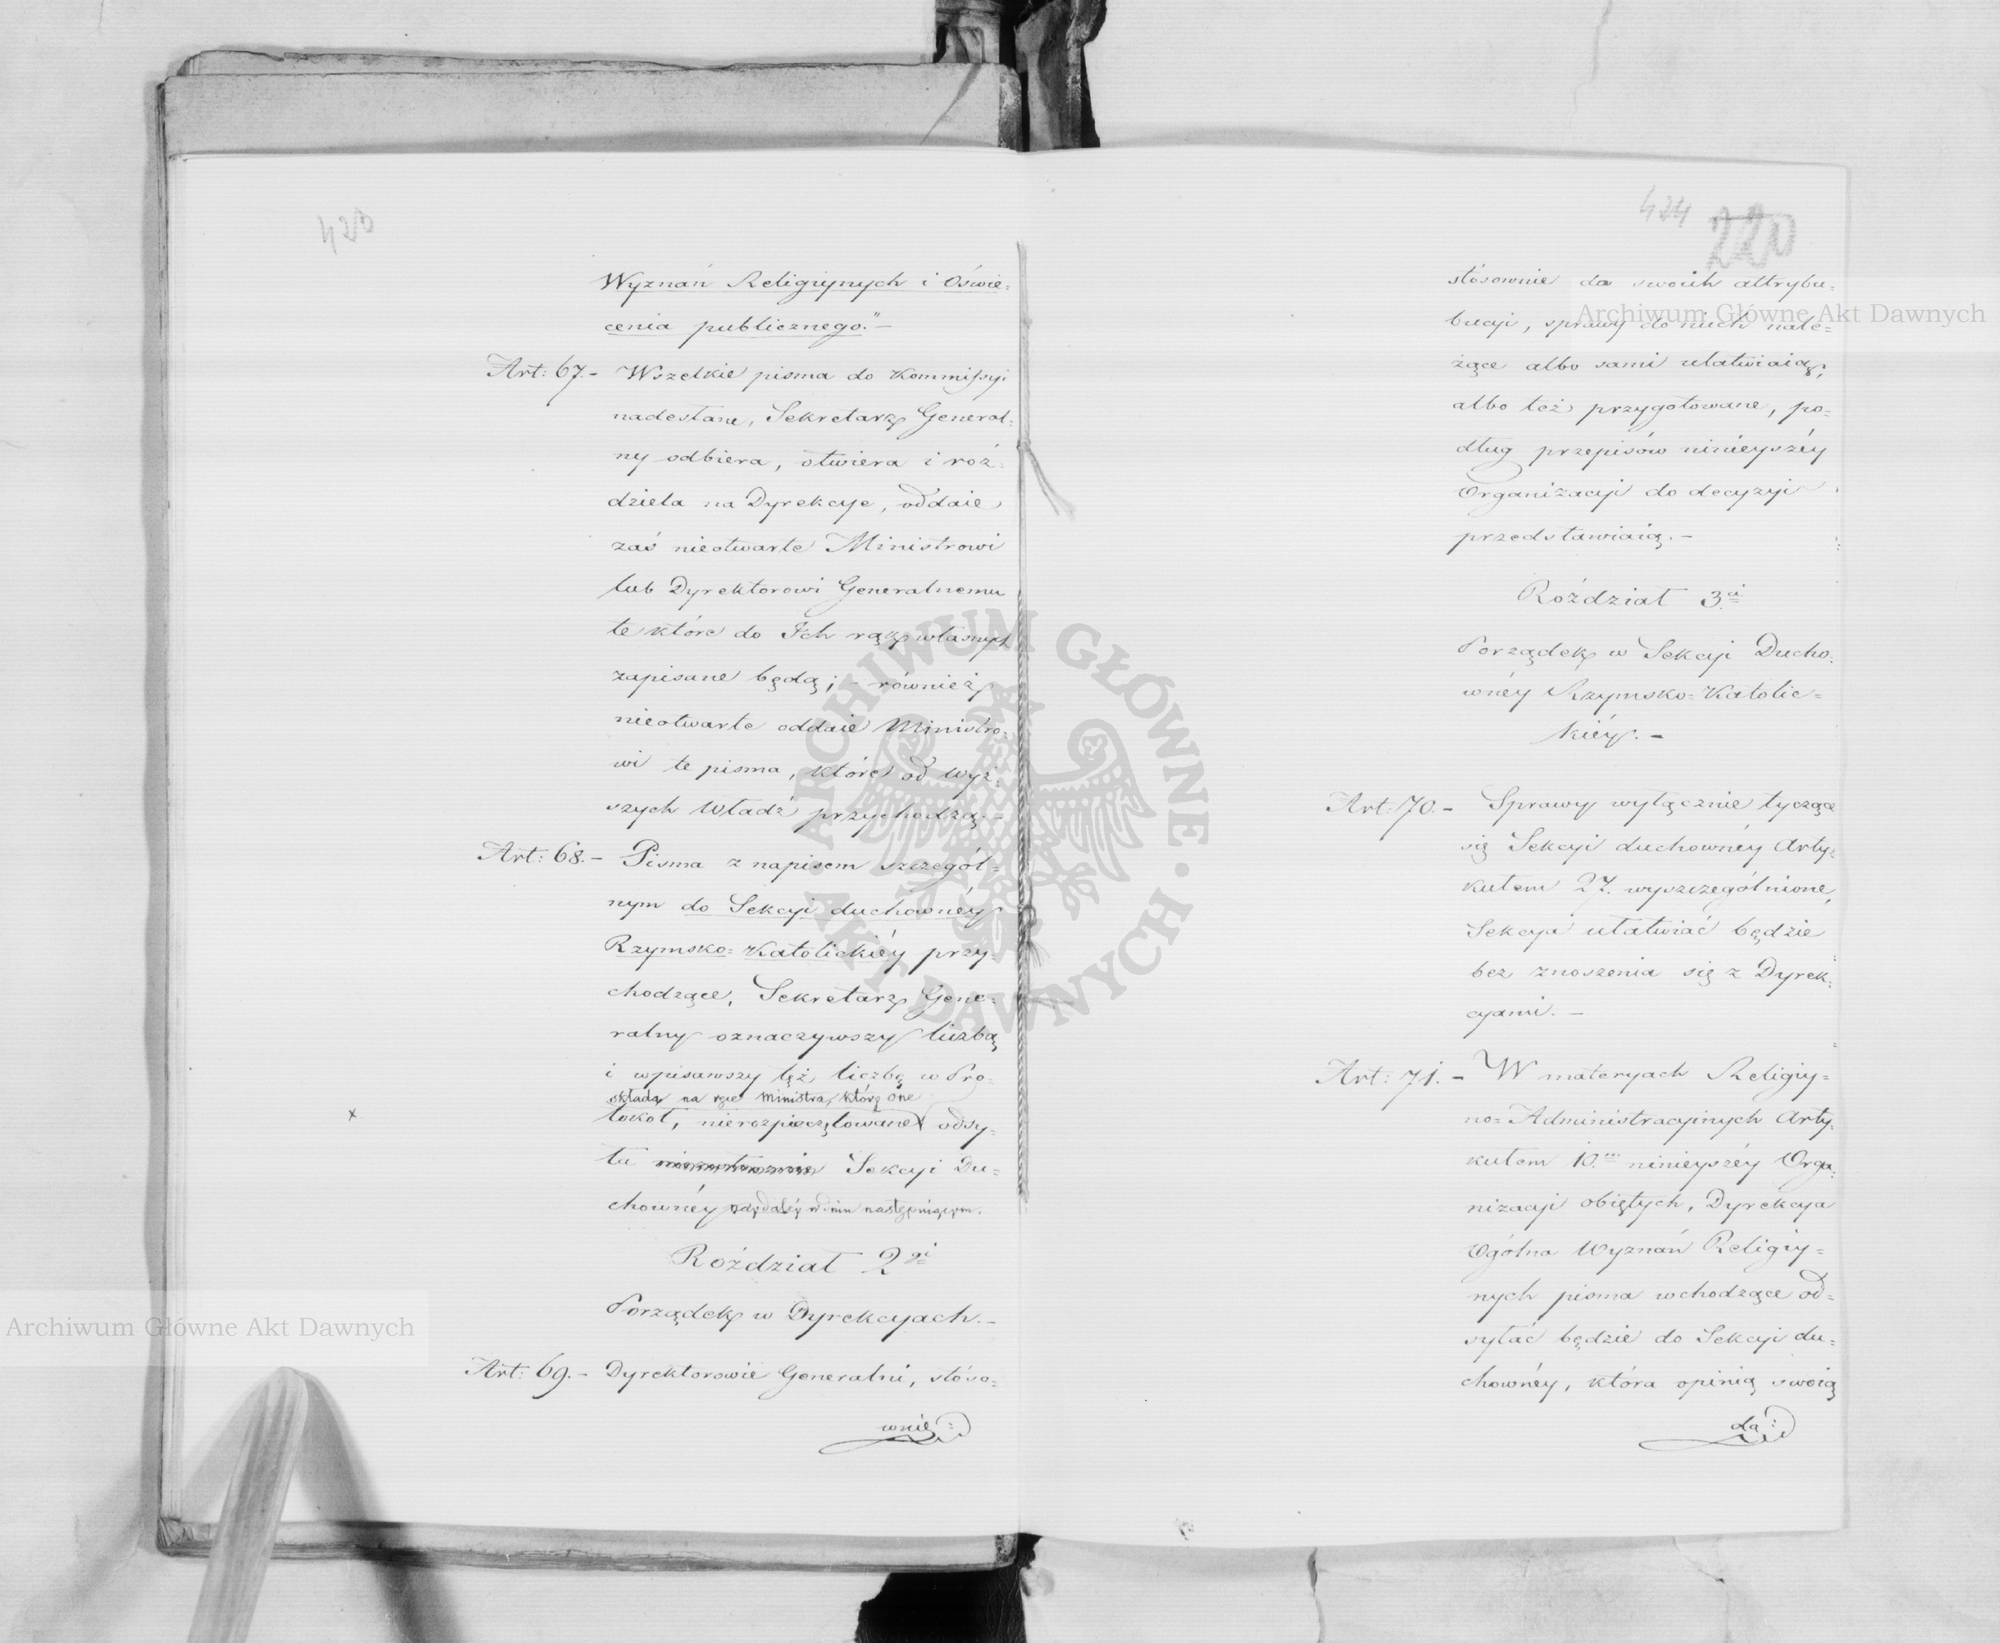 423
Wyznań Religiynych i Oświe=
cenia publicznego."-
Art: 67.- Wszelkie pisma do Kommissyi
nadesłane, Sekretarz General=
ny odbiera, otwiera i roz=
dziela na Dyrekcye, oddaie
zaś nieotwarte Ministrowi
lub Dyrektorowi Generalnemu
te które do Ich rąk własnych
zapisane będą; - również
nieotwarte oddaie Ministro=
wi te pisma, które od wyż=
szych Władz przychodzą.-
Art: 68.- Pisma z napisem szczegól=
nym do Sekcyi duchownéy
Rzymsko=Katolickiéy przy=
chodzące, Sekretarz Gene=
ralny oznaczywszy liczbą
i wpisawszy tęż liczbę w Pro=
składa na ręce Ministra, który one
tokół, nierozpieczętowane odsy=
ła Sekcyi Du=
chownéy naydaléy w dniu następuiącym.
Roździał 2gi
Porządek w Dyrekcyach.-
Art: 69.- Dyrektorowie Generalni, stóso=
wnie
424 220
stósownie do swoich attrybu=
bucyi, sprawy do nich nale=
żące albo sami ułatwiaią,
albo też przygotowane, po=
dług przepisów ninieyszéy
Organizacyi do decyzyi
przedstawiaią.-
Roździał 3ci
Porządek w Sekcyi Ducho=
wnéy Rzymsko=Katolic=
kiéy.-
Art: 70.- Sprawy wyłącznie tyczące
się Sekcyi duchownéy Arty=
kułem 27. wyszczególnione,
Sekcya ułatwiać będzie
bez znoszenia się z Dyrek=
cyami.-
Art: 71.- W materyach Religiy=
no=Administracyinych Arty=
kułem 10.m ninieyszéy Orga=
nizacyi obiętych, Dyrekcya
Ogólna Wyznań Religiy=
nych pisma wchodzące od=
syłać będzie do Sekcyi du=
chownéy, która opinią swoią
da
Archiwum Główne Akt Dawnych
Archiwum Główne Akt Dawnych
ARCHIWUM GŁÓWNE AKT DAWNYCH